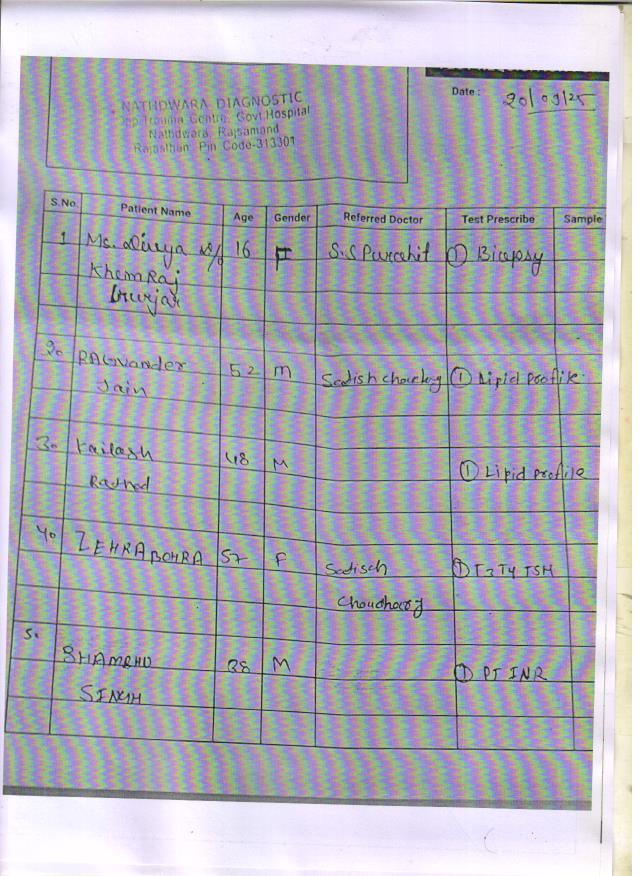 NATHDWARA DIAGNOSTIC
Opp. Trauma Centre, Govt Hospital
Nathdwara, Rajsamand
Rajasthan, Pin Code-313301
Date : 20/03/25
S.No. Patient Name Age Gender Referred Doctor Test Prescribe Sample
1 Ms. Divya D/o 16 F S.S Purohit ① Biopsy
KhemRaj
Gurjar
2. 52 M Satish ① Lipid Profile
Jain
3. Kailash 48 M ① Lipid profile
Rathod
4. ZEHRA BOHRA 57 F Satisch ① T3 T4 TSH
Choudhary
5. SHAMBHU 38 M ① PT INR
SINGH